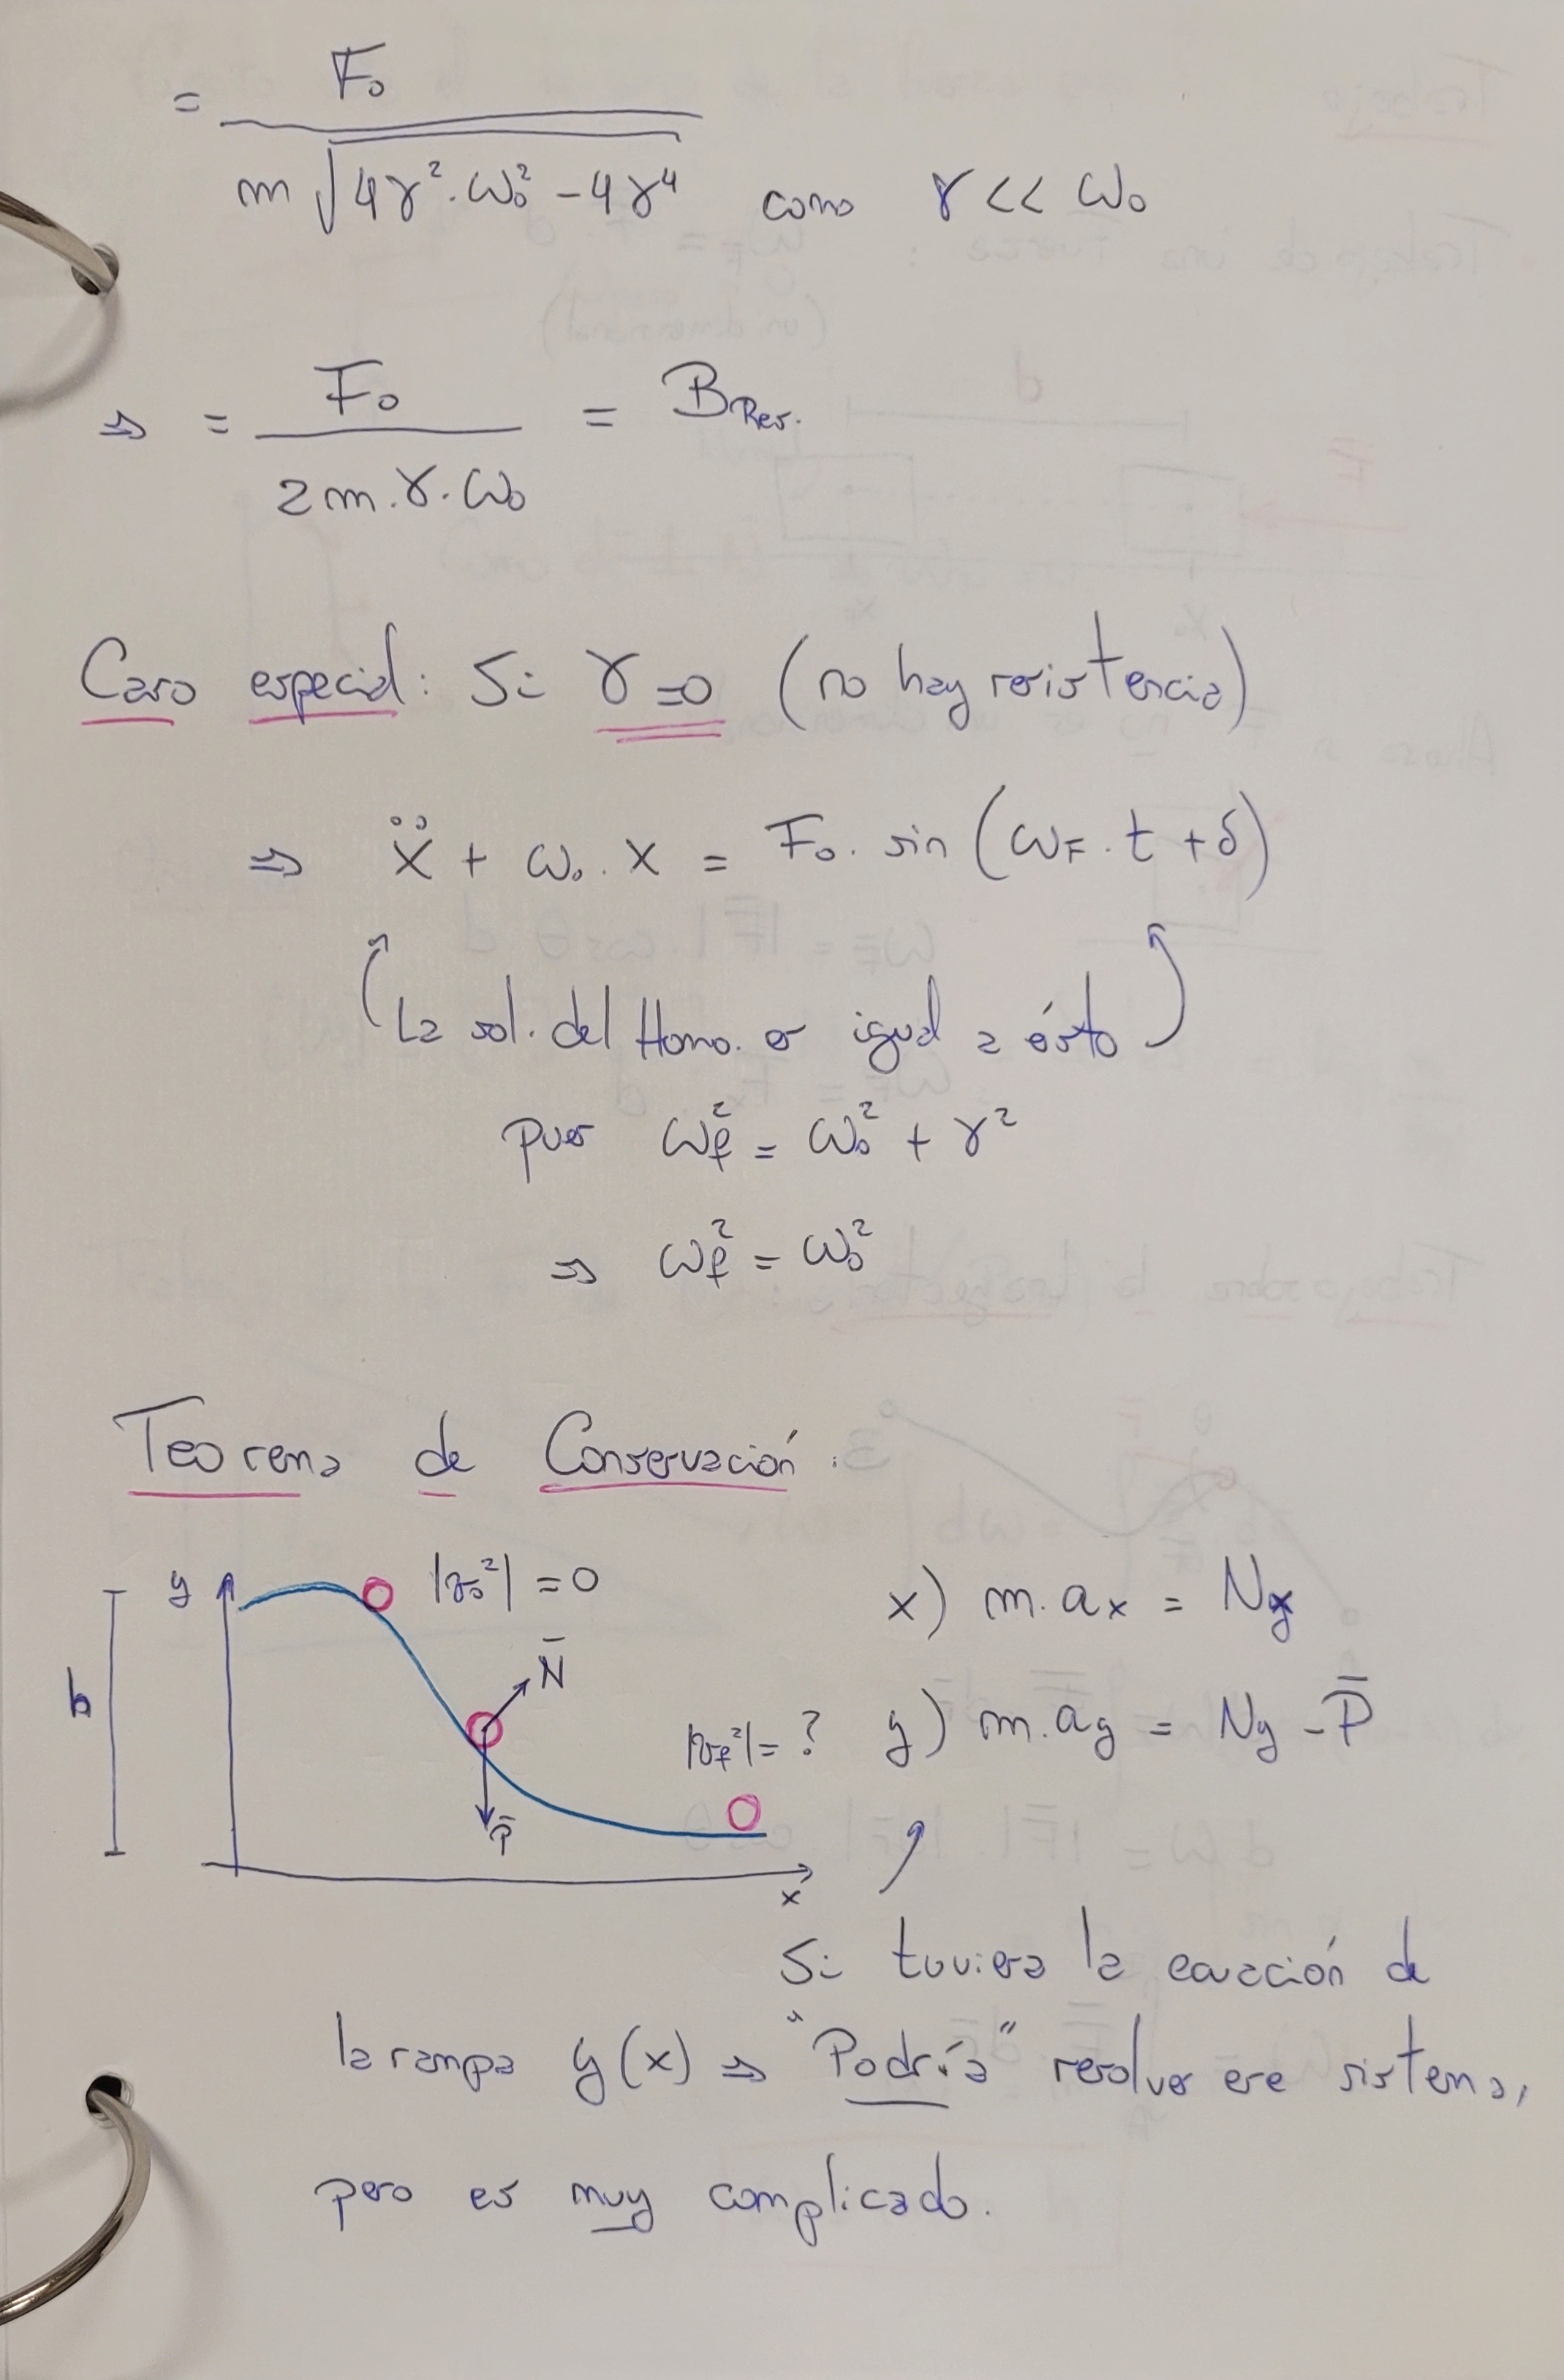 = F₀ / (m √(4γ²·ω₀² - 4γ⁴)) como γ << ω₀
⇒ = F₀ / (2m.γ.ω₀) = B_Res.
Caso especial: Si γ=0 (no hay resistencia)
⇒ ẍ + ω₀.x = F₀. sin (ω_F.t + δ)
(La sol. del Homo. es igual a ésto)
pues ω_f² = ω₀² + γ²
⇒ ω_f² = ω₀²
Teorema de Conservación:
y |v₀²| = 0
x) m.aₓ = Nₓ
N̄
h
|v_f²| = ?
y) m.a_y = N_y - P̄
P̄
x
Si tuviera la ecuación de
la rampa y(x) ⇒ "Podría" resolver ese sistema,
pero es muy complicado.